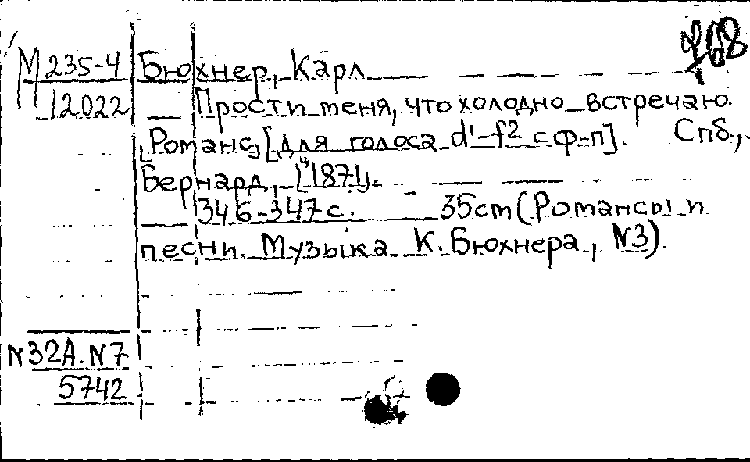 768
М 235-4 Бюхнер, Карл
12022 Прости меня, что холодно встречаю.
Романс, [для голоса d¹-f² с ф-п]. Спб.,
Бернард, [1871].
346-347 с. 35 cm (Романсы и
песни. Музыка К. Бюхнера, №3).
N32A.N7
5742